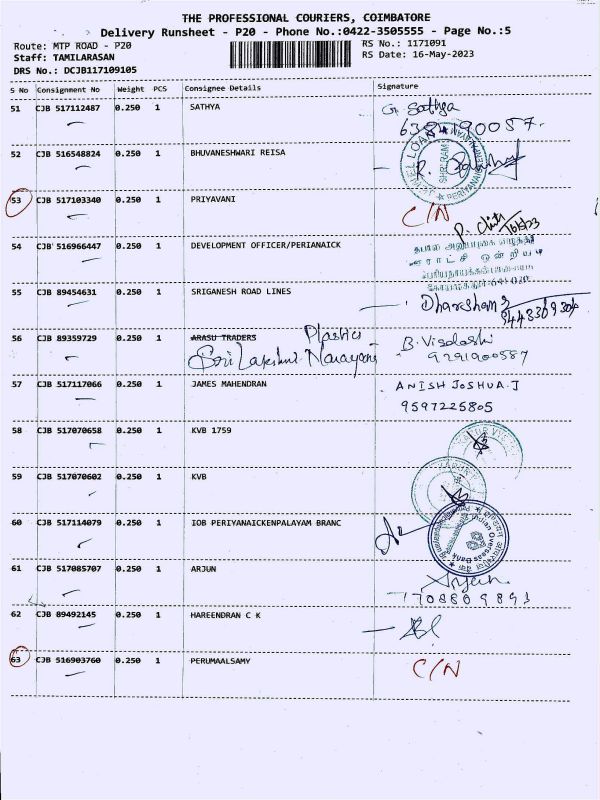 THE PROFESSIONAL COURIERS, COIMBATORE
Delivery Runsheet - P20 - Phone No.:0422-3505555 - Page No.:5
Route: MTP ROAD - P20
RS No.: 1171091
Staff: TAMILARASAN
RS Date: 16-May-2023
DRS No.: DCJB117109105
S No Consignment No Weight PCS Consignee Details Signature
51 CJB 517112487 0.250 1 SATHYA G. Sathya
52 CJB 516548824 0.250 1 BHUVANESHWARI REISA
53 CJB 517103340 0.250 1 PRIYAVANI C/N
54 CJB 516966447 0.250 1 DEVELOPMENT OFFICER/PERIANAICK
55 CJB 89454631 0.250 1 SRIGANESH ROAD LINES Dharsham
56 CJB 89359729 0.250 1 ARASU TRADERS Plastics
Sri Lakshmi Narayana B. Visalashi
9291900587
57 CJB 517117066 0.250 1 JAMES MAHENDRAN ANISH JOSHUA.J
9597225805
58 CJB 517070658 0.250 1 KVB 1759
59 CJB 517070602 0.250 1 KVB
60 CJB 517114079 0.250 1 IOB PERIYANAICKENPALAYAM BRANC
Indian Overseas Bank
61 CJB 517085707 0.250 1 ARJUN Arjun
7708809891
62 CJB 89492145 0.250 1 HAREENDRAN C K
63 CJB 516903760 0.250 1 PERUMAALSAMY C/N